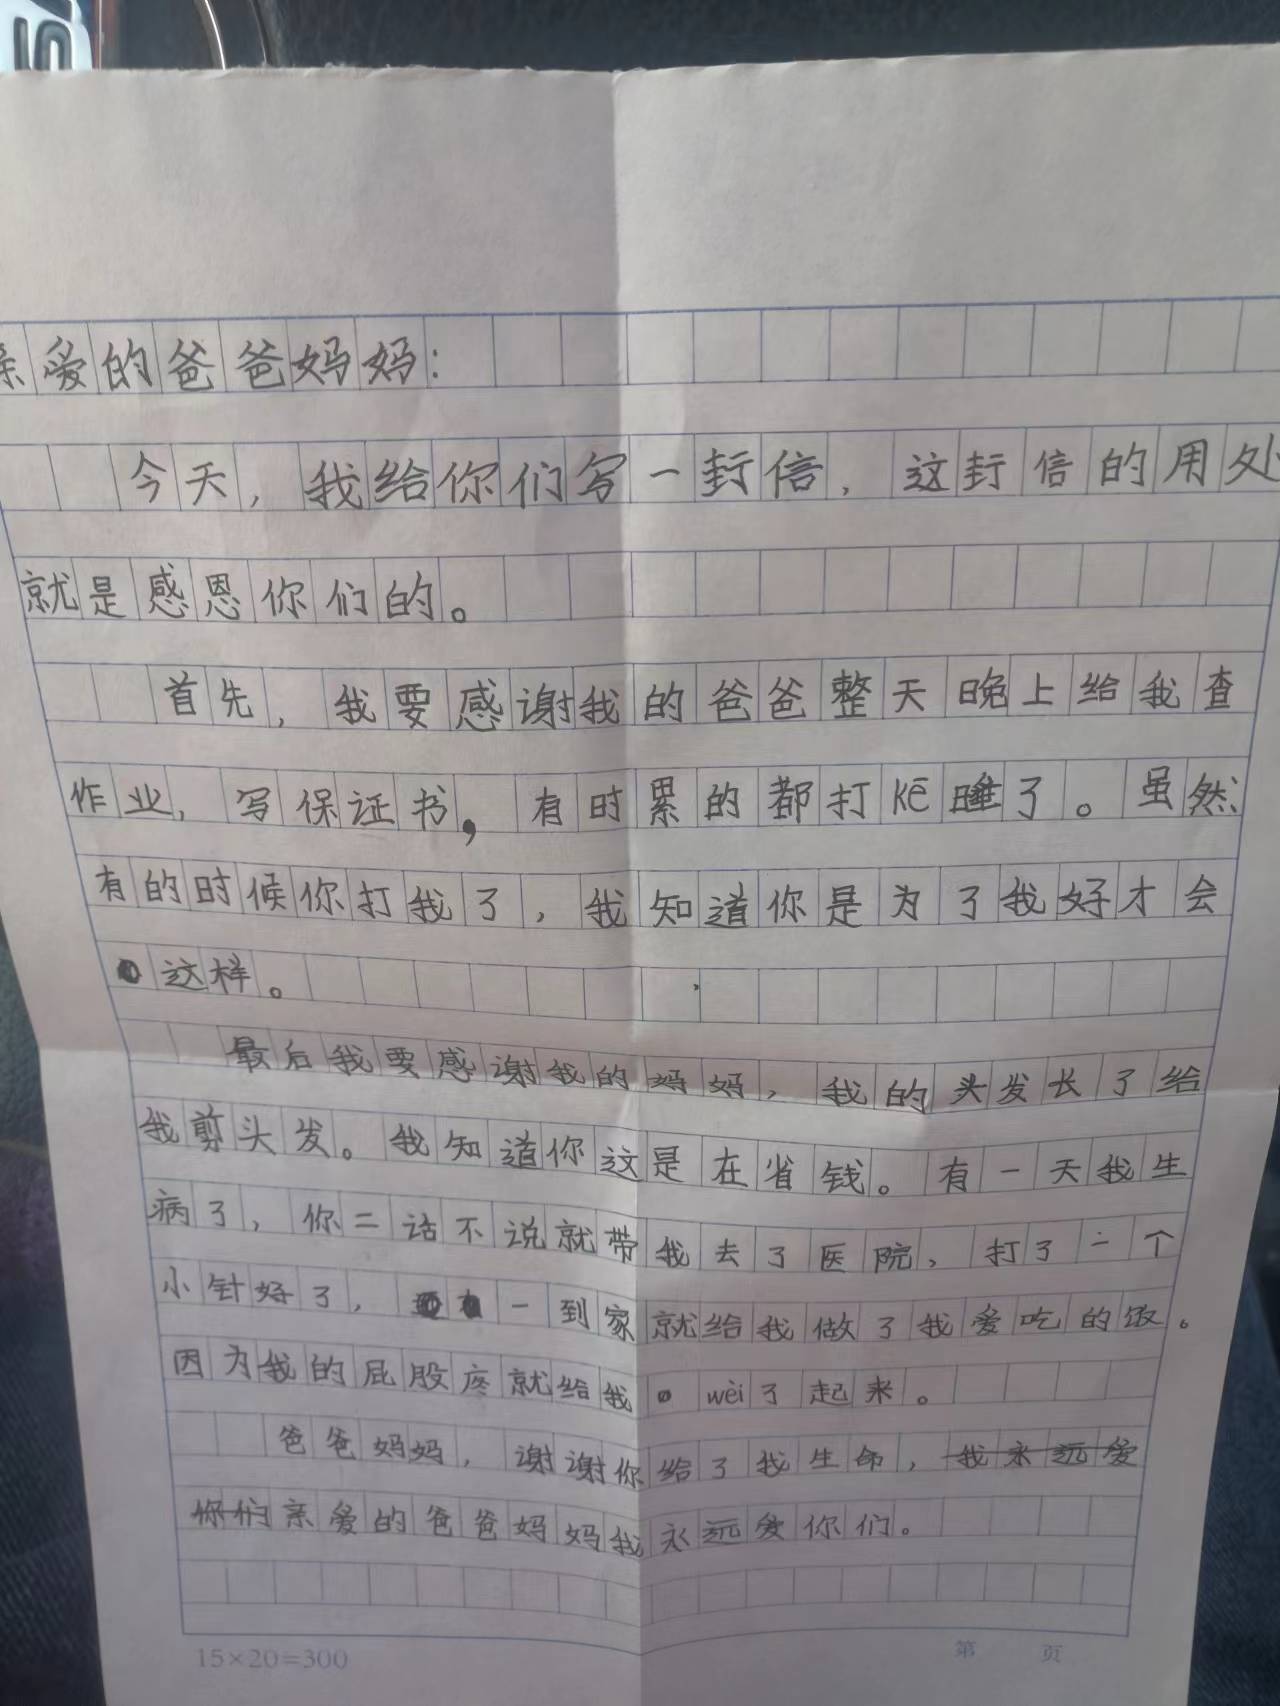 亲爱的爸爸妈妈：
今天，我给你们写一封信，这封信的用处
就是感恩你们的。
首先，我要感谢我的爸爸整天晚上给我查
作业，写保证书，有时累的都打kē睡了。虽然
有的时候你打我了，我知道你是为了我好才会
这样。
最后我要感谢我的妈妈，我的头发长了给
我剪头发。我知道你这是在省钱。有一天我生
病了，你二话不说就带我去了医院，打了一个
小针好了，一到家就给我做了我爱吃的饭。
因为我的屁股疼就给我wèi了起来。
爸爸妈妈，谢谢你给了我生命，我永远爱
你们亲爱的爸爸妈妈我永远爱你们。
15×20=300
第 页